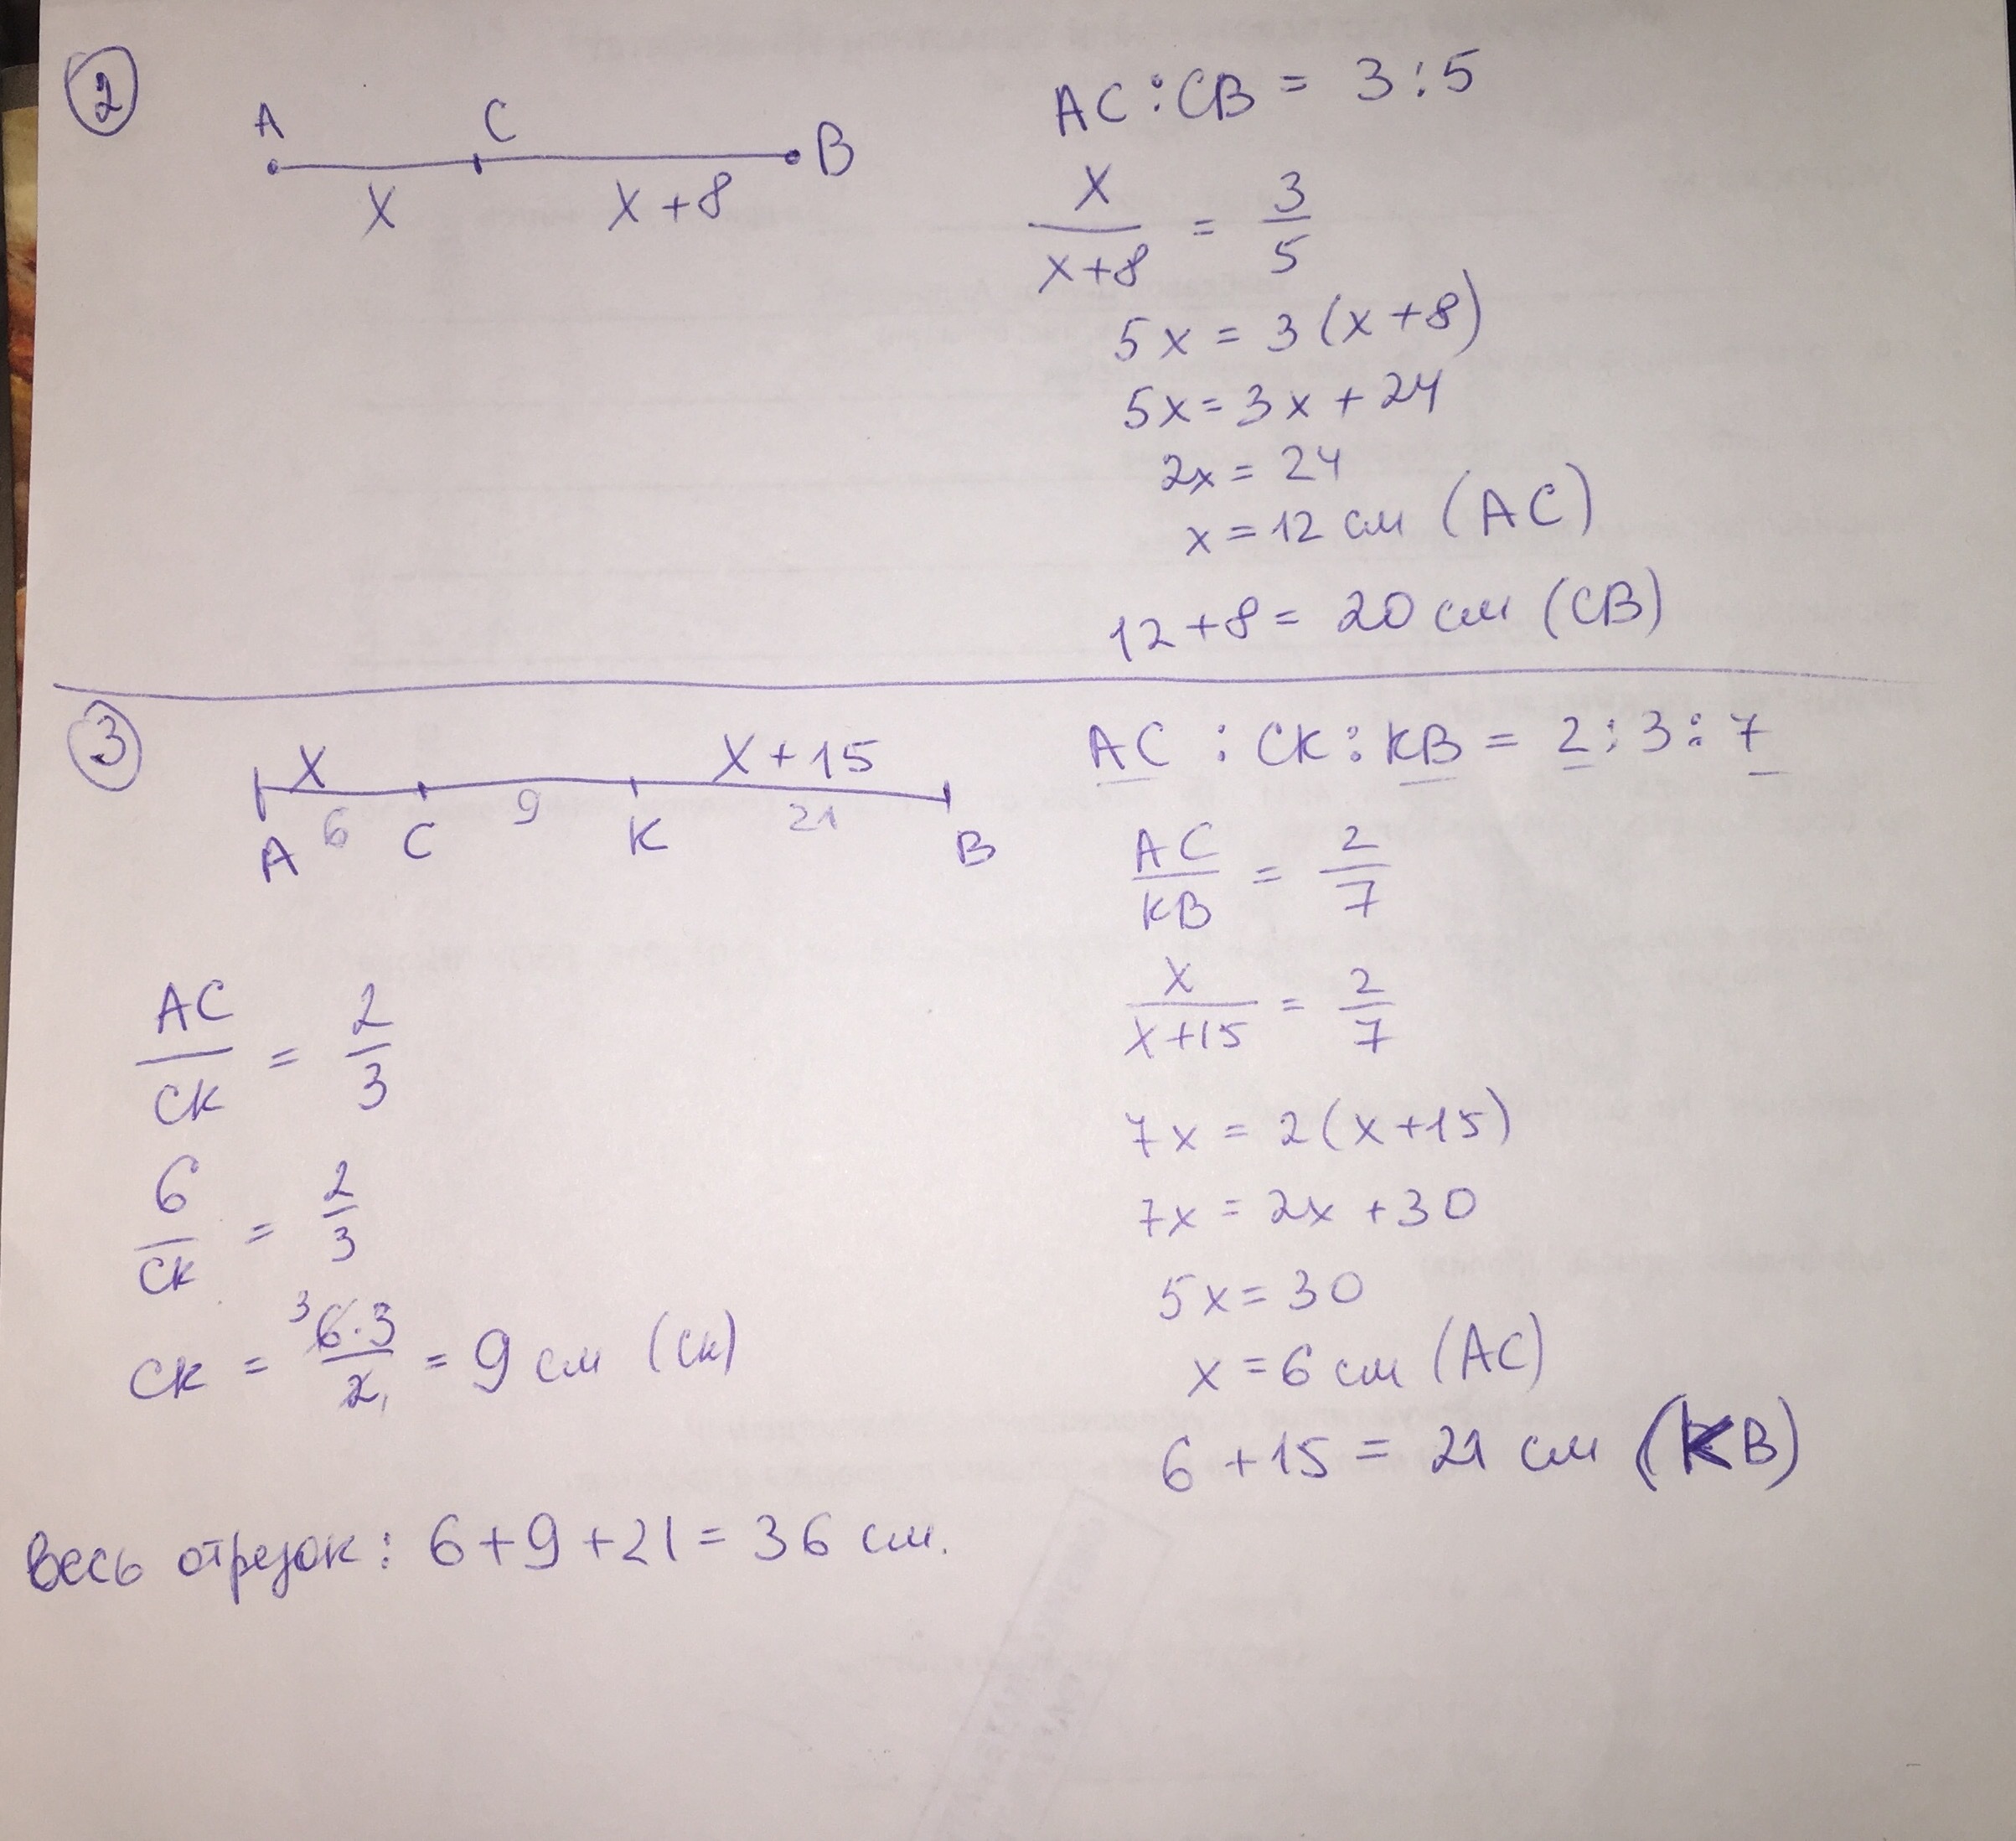 2
A C B
x x+8
AC:CB = 3:5
x/(x+8) = 3/5
5x = 3(x+8)
5x = 3x + 24
2x = 24
x = 12 см (AC)
12 + 8 = 20 см (CB)
3
x x+15
6 9 21
A C K B
AC : CK : KB = 2 : 3 : 7
AC/KB = 2/7
x/(x+15) = 2/7
7x = 2(x+15)
7x = 2x + 30
5x = 30
x = 6 см (AC)
6 + 15 = 21 см (KB)
AC/CK = 2/3
6/CK = 2/3
CK = ³6·3/2₁ = 9 см (CK)
Весь отрезок: 6+9+21 = 36 см.